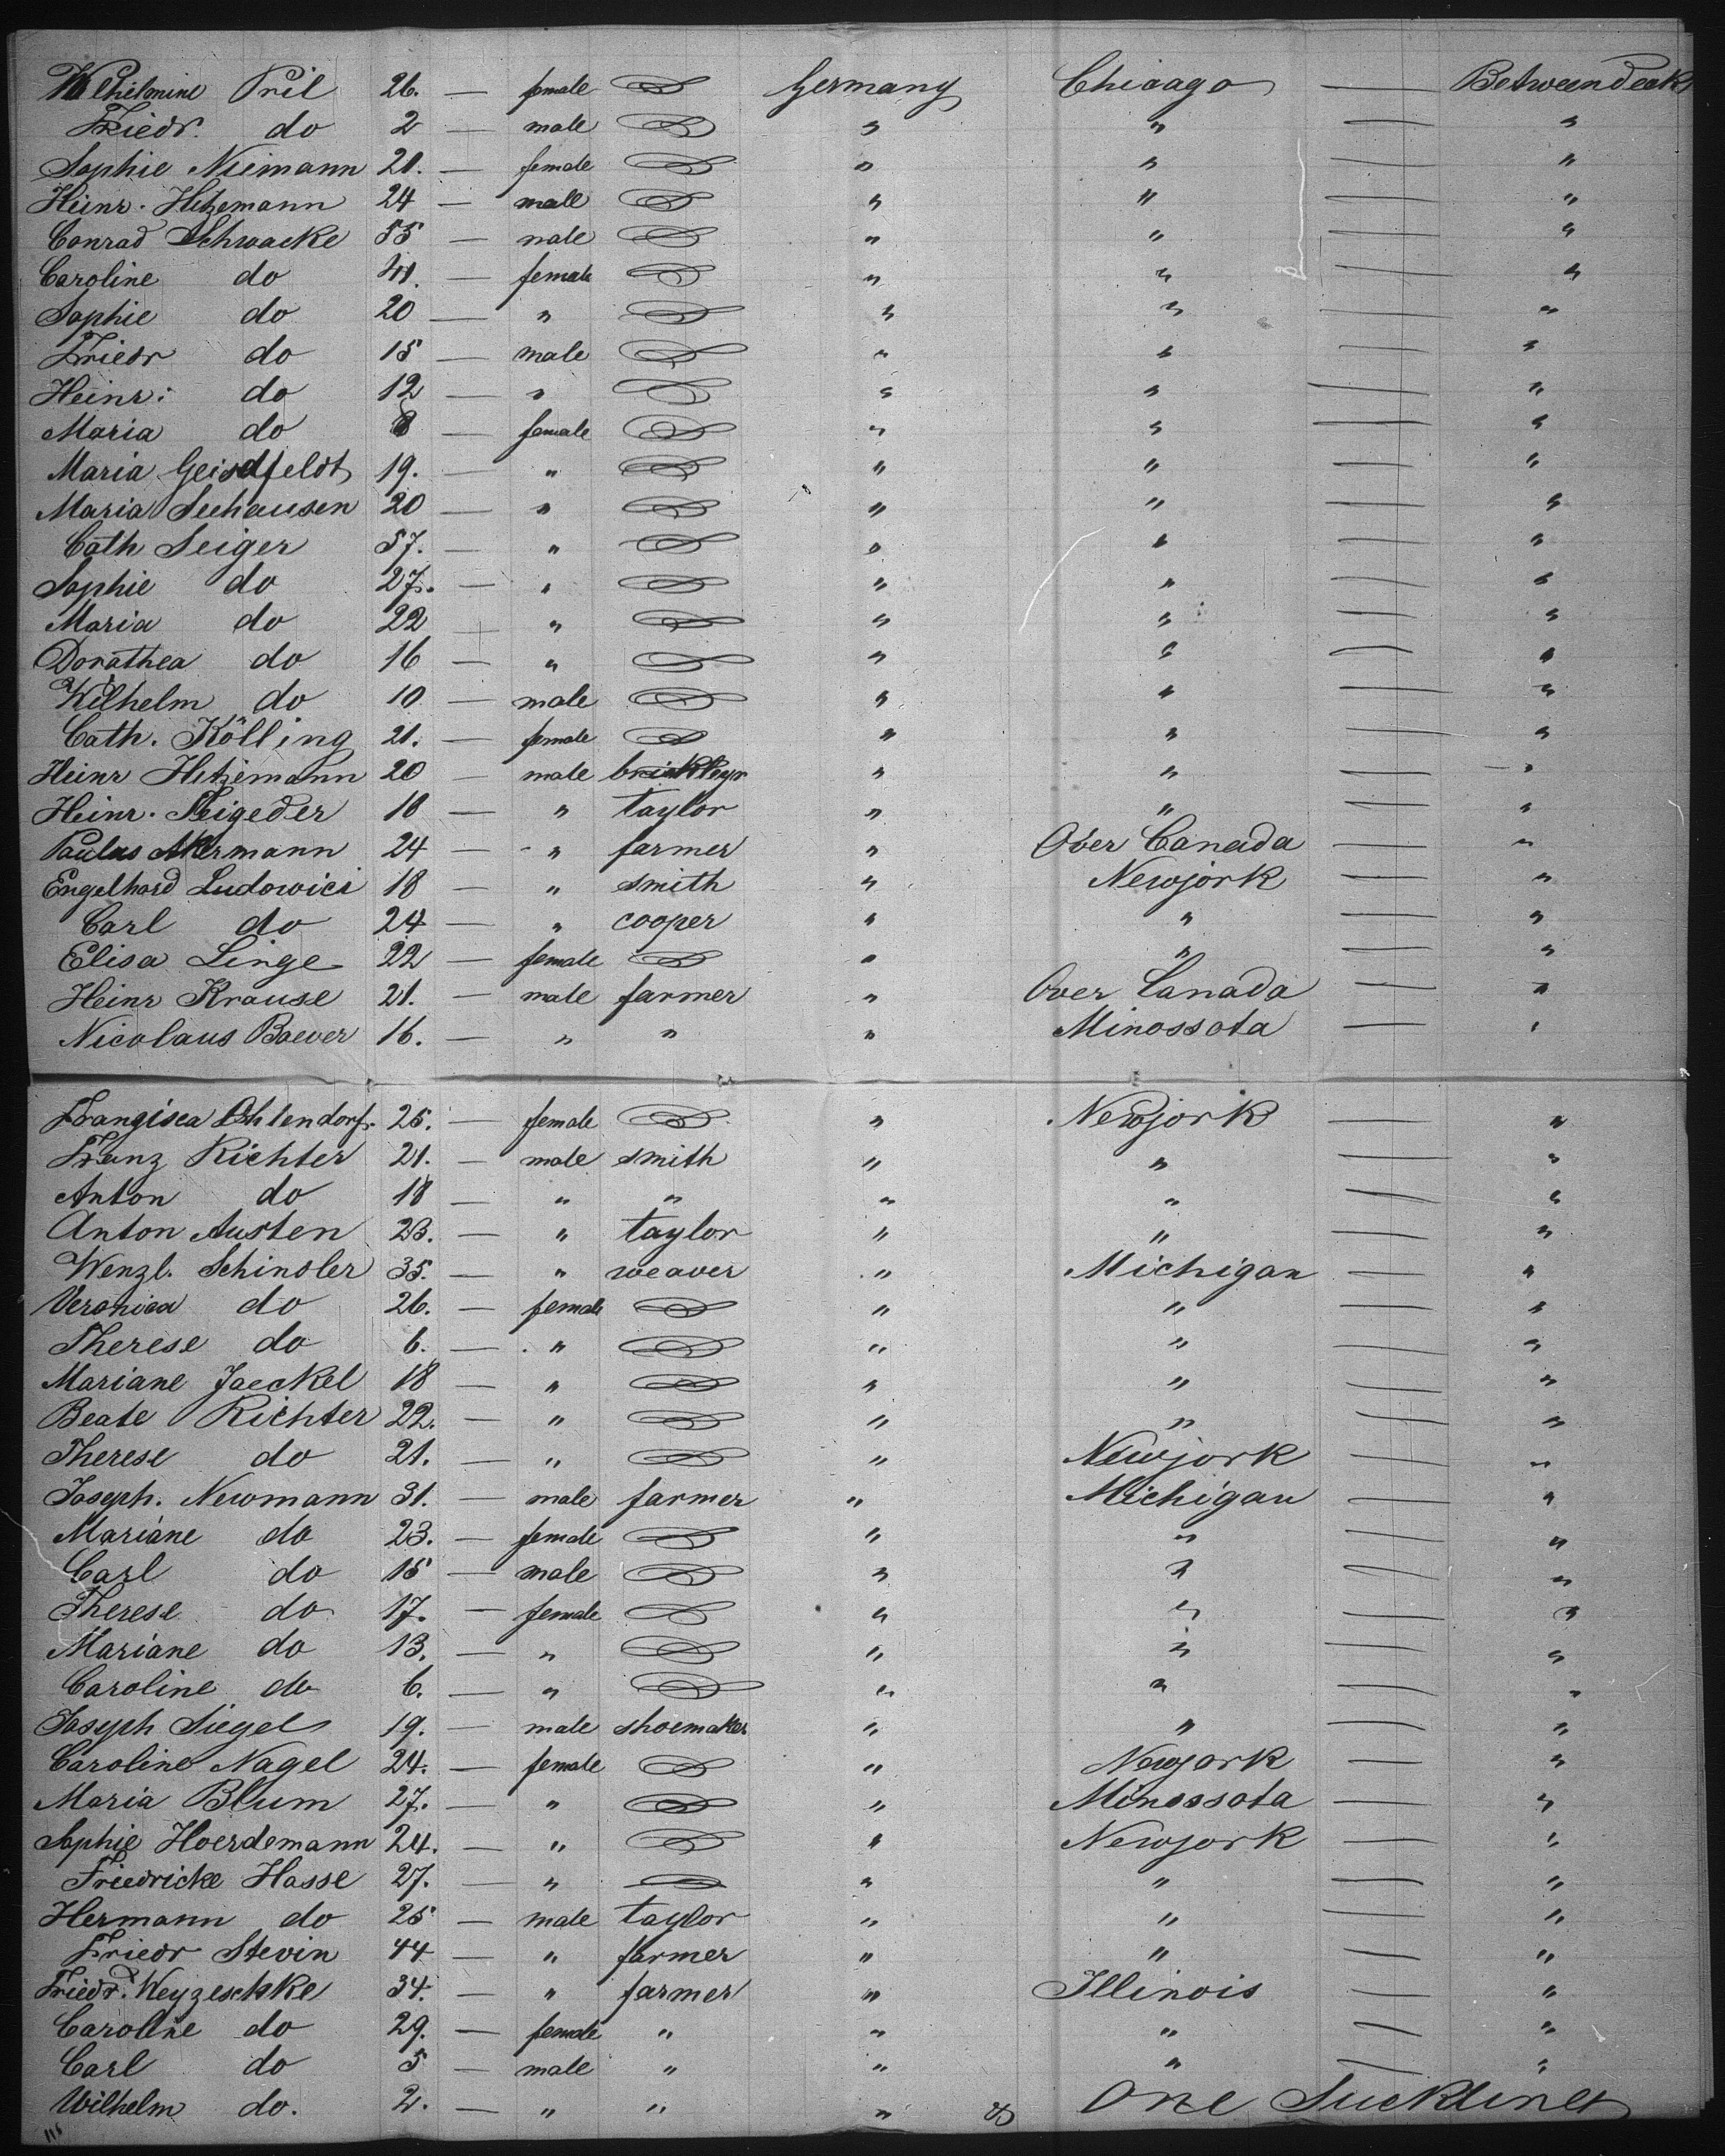 Wilhelmine Pril 26. — female Germany Chicago — Betweendeak
Friedr. do 2 — male " " — "
Sophie Niemann 21. — female " " — "
Heinr. Hitzemann 24 — male " " — "
Conrad Schwacke 55 — male " " — "
Caroline do 41. — female " " — "
Sophie do 20 — " " " — "
Friedr do 15 — male " " — "
Heinr: do 12 — " " " — "
Maria do 8 — female " " — "
Maria Geisdfeldt 19. — " " " — "
Maria Seehausen 20 — " " " — "
Cath Seiger 57. — " " " — "
Sophie do 27. — " " " — "
Maria do 22 — " " " — "
Dorathea do 16 — " " " — "
Wilhelm do 10 — male " " — "
Cath. Kölling 21. — female " " — "
Heinr Hitzemann 20 — male " " — "
Heinr. 18 — " taylor " " — "
Paulus Akermann 24 — " farmer " Over Canada — "
Engelhard Ludowici 18 — " smith " Newjork — "
Carl do 24 — " cooper " " — "
Elisa Linge 22 — female " " — "
Heinr Krause 21. — male farmer " Over Canada — "
Nicolaus Baever 16. — " " " Minossota — "
Frangisca Ohlendorf. 25. — female " Newjork — "
Franz Richter 21. — male smith " " — "
Anton do 18 — " " " " — "
Anton Austen 23. — " taylor " " — "
Wenzl. Schindler 35. — " weaver " Michigan — "
Veronica do 26. — female " " — "
Therese do 6. — " " " — "
Mariane Jaeckel 18 — " " " — "
Beate Richter 22. — " " " — "
Therese do 21. — " " Newjork — "
Joseph. Newmann 31. — male farmer " Michigan — "
Mariane do 23. — female " " — "
Carl do 15 — male " " — "
Therese do 17. — female " " — "
Mariane do 13. — " " " — "
Caroline do 6. — " " " — "
Joseph Siegel 19. — male shoemaker " " — "
Caroline Nagel 24. — female " Newjork — "
Maria Blum 27. — " " Minossota — "
Sophie Hoerdemann 24. — " " Newjork — "
Friedricke Hasse 27. — " " " — "
Hermann do 25 — male taylor " " — "
Friedr Stevin 44 — " farmer " " — "
Friedr. Weyzeschke 34. — " farmer " Illinois — "
Caroline do 29. — female " " " — "
Carl do 5 — male " " " — "
Wilhelm do. 2. — " " " & One Sucklines
115